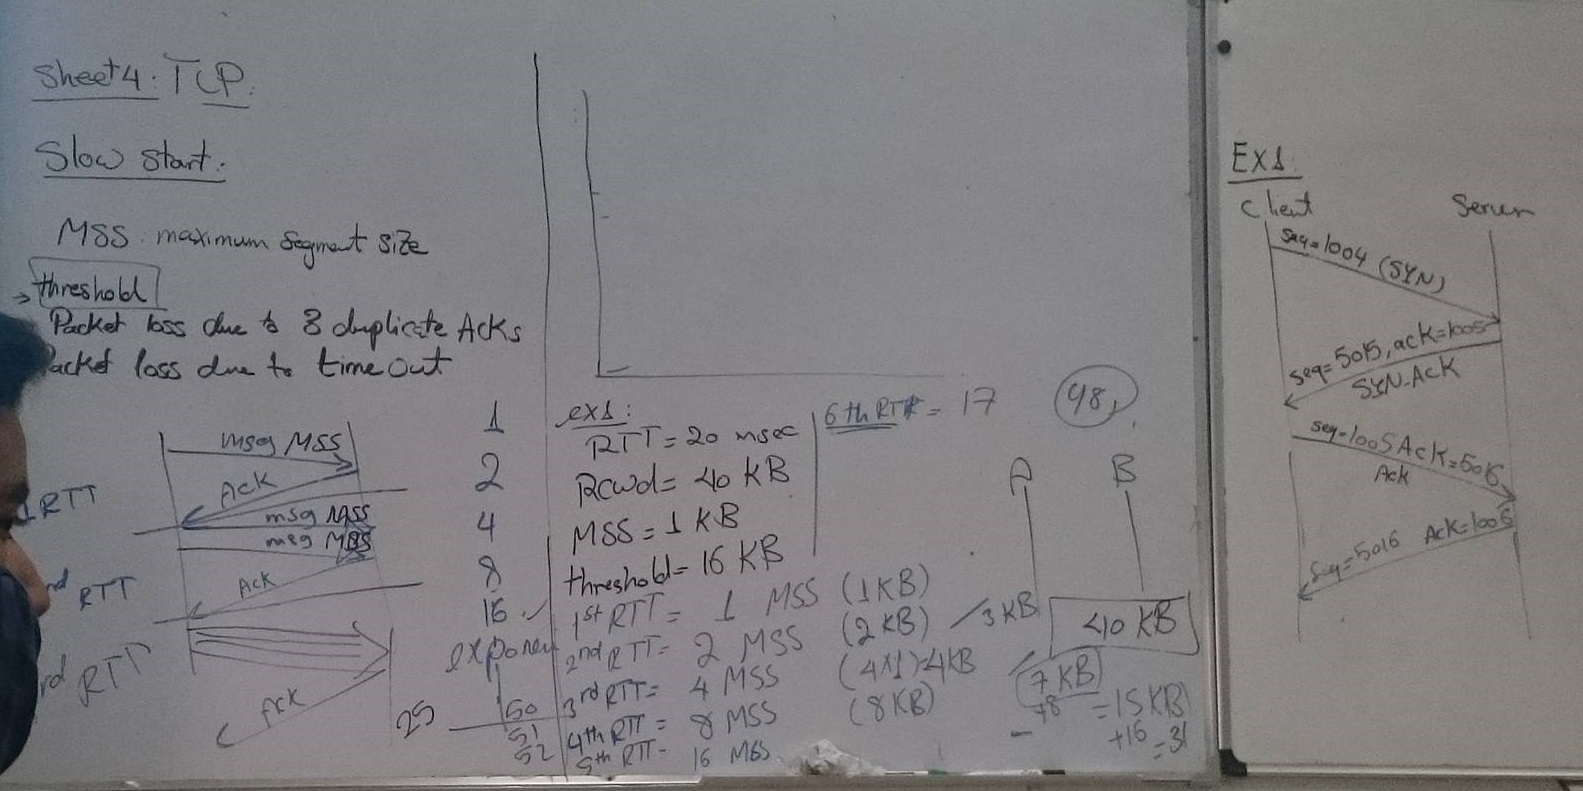 Sheet 4: TCP.
Slow start:
MSS: maximum segment size
→ threshold
Packet loss due to 3 duplicate Acks
Packet loss due to time out
msg MSS
Ack
1 RTT
msg MSS
msg MSS
Ack
nd RTT
rd RTT
Ack
1
2
4
8
16
exponen
25
50
51
52
ex1:
RTT = 20 msec
Rcwd = 40 KB
MSS = 1 KB
threshold = 16 KB
1st RTT = 1 MSS (1KB)
2nd RTT = 2 MSS (2 KB) 3 KB
3rd RTT = 4 MSS (4x1)=4KB
4th RTT = 8 MSS (8 KB)
5th RTT = 16 MSS
6th RTT = 17
48
A B
40 KB
7 KB
+8 = 15 KB
+16 = 31
Ex1:
Client Server
seq=1004 (SYN)
seq=5015, ack=1005
SYN-Ack
seq=1005 Ack=5016
Ack
Seq=5016 Ack=1006